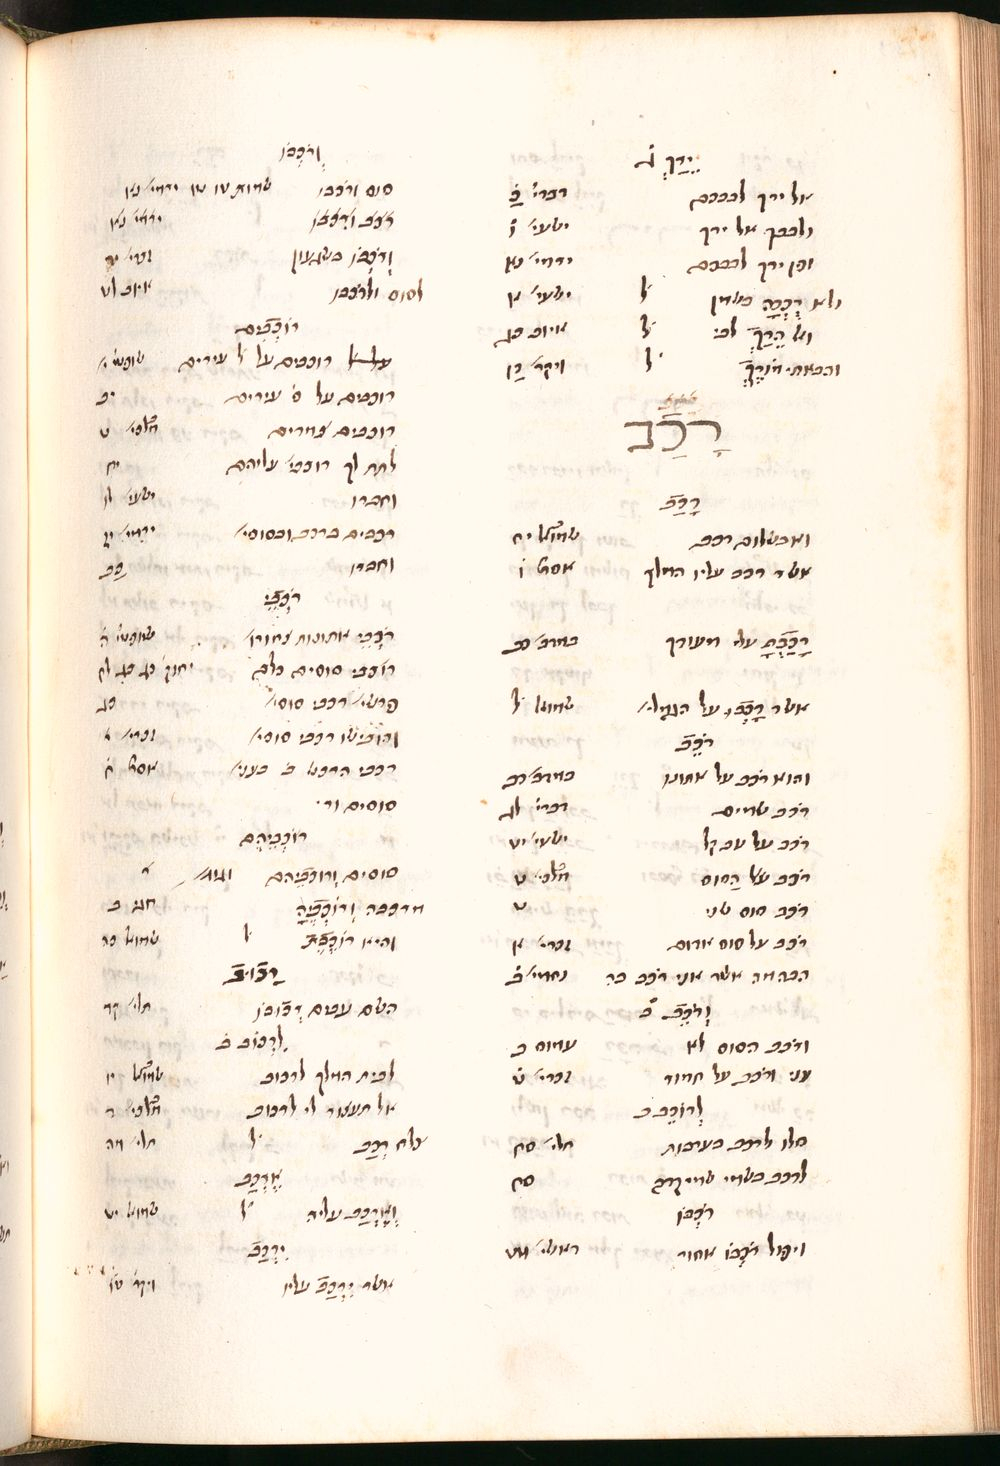 יֵרַךְ ג̇
אל ירך לבבכם דברי׳ כ̇
ולבבך אל ירך ישעי׳ ז̇
ופן ירך לבבכם ירמי׳ נא
ולא רֻכְּכָה בשמן ל̇ ישעי׳ א
ואל הֵרַךְ לבי ל̇ איוב כג
והבאתי מֹרֶךְ ל̇ ויקר׳ כו
רָכַב
רָכַב
ואבשלום רכב שמואל יח
אשר רכב עליו המלך אסת׳ ו̇
רָכַבְתָּ עלי מעודך במדב׳ כב
אשר רָכְבוּ על הגמלי׳ שמוא ל̇
רֹכֵב
והוא רֹכב על אתונו במדב׳ כב
רֹכב שמים דברי׳ לג
רֹכב על עב קל ישעי׳ יט
רֹכב על הַסוס מלכי׳ ט
רֹכב סוס שני ט
רֹכב על סוס אדום זכרי׳ א
הבהמה אשר אני רֹכב בה נחמי׳ ב̇
וְרֹכֵב ב̇
ורֹכב הסוס לא עמוס ב
עני ורֹכב על חמור זכרי׳ ט̇
לָרוֹכֵב ב
סלו לרֹכב בערבות תלי׳ סח
לרֹכב בשמי שמי קדם סח
רֹכְבוֹ
ויפול רֹכְבוֹ אחור ראשי׳ מט
וְרֹכְבוֹ
סוס ורֹכבו שמות טו א׳ ירמי׳ נא
רֹכֶב וְרֹכְבוֹ ירמי׳ נא
וְרֹכְבוֹ בשגעון זכרי׳ יב
לסוס ולרֹכבו איוב לט
רוֹכְבִים
רוכבים על ל̇ עירים שופטי׳ י
רוכבים על ע׳ עירים יב
רוכבים צמדים מלכי׳ ט
לתת לך רוכבי׳ עליהם יח
וחברו ישעי׳ לו
רכבים ברכב ובסוסי׳ ירמי׳ יז
וחברו כב
רֹכְבֵי
רֹכְבֵי אתונות צחורו׳ שופטי׳ ה̇
רוֹכבי סוסים כלם יחזק׳ כג כג לח
פרשי׳ רכבי סוסי׳ כג
והובישו רכבי סוסי׳ זכרי׳ י
רכבי הרכש ב׳ בעני׳ אסת׳ ח̇
סוסים ור׳
רוֹכְבֵיהֶם
סוסים וְרוֹכְבֵיהם
מרכבה וְרֹוכְבֶיהָ חגי ב
והיא רוֹכֶבֶת ל̇ שמוא׳ כה
רְכוּב
השם עבים רְכוּבוֹ תלי׳ קד
לִרְכּוֹב ב̇
לבית המלך לרכוב שמואל יו
אל תעצור לי לרכוב מלכי׳ ד
צלח רְכַב ל̇ תלי׳ מה
אֶרְכַּב
וְאֶרְכַּב עליה ל̇ שמוא׳ יט
יִרְכַּב
אשר יִרְכַּב עליו ויקר׳ טו